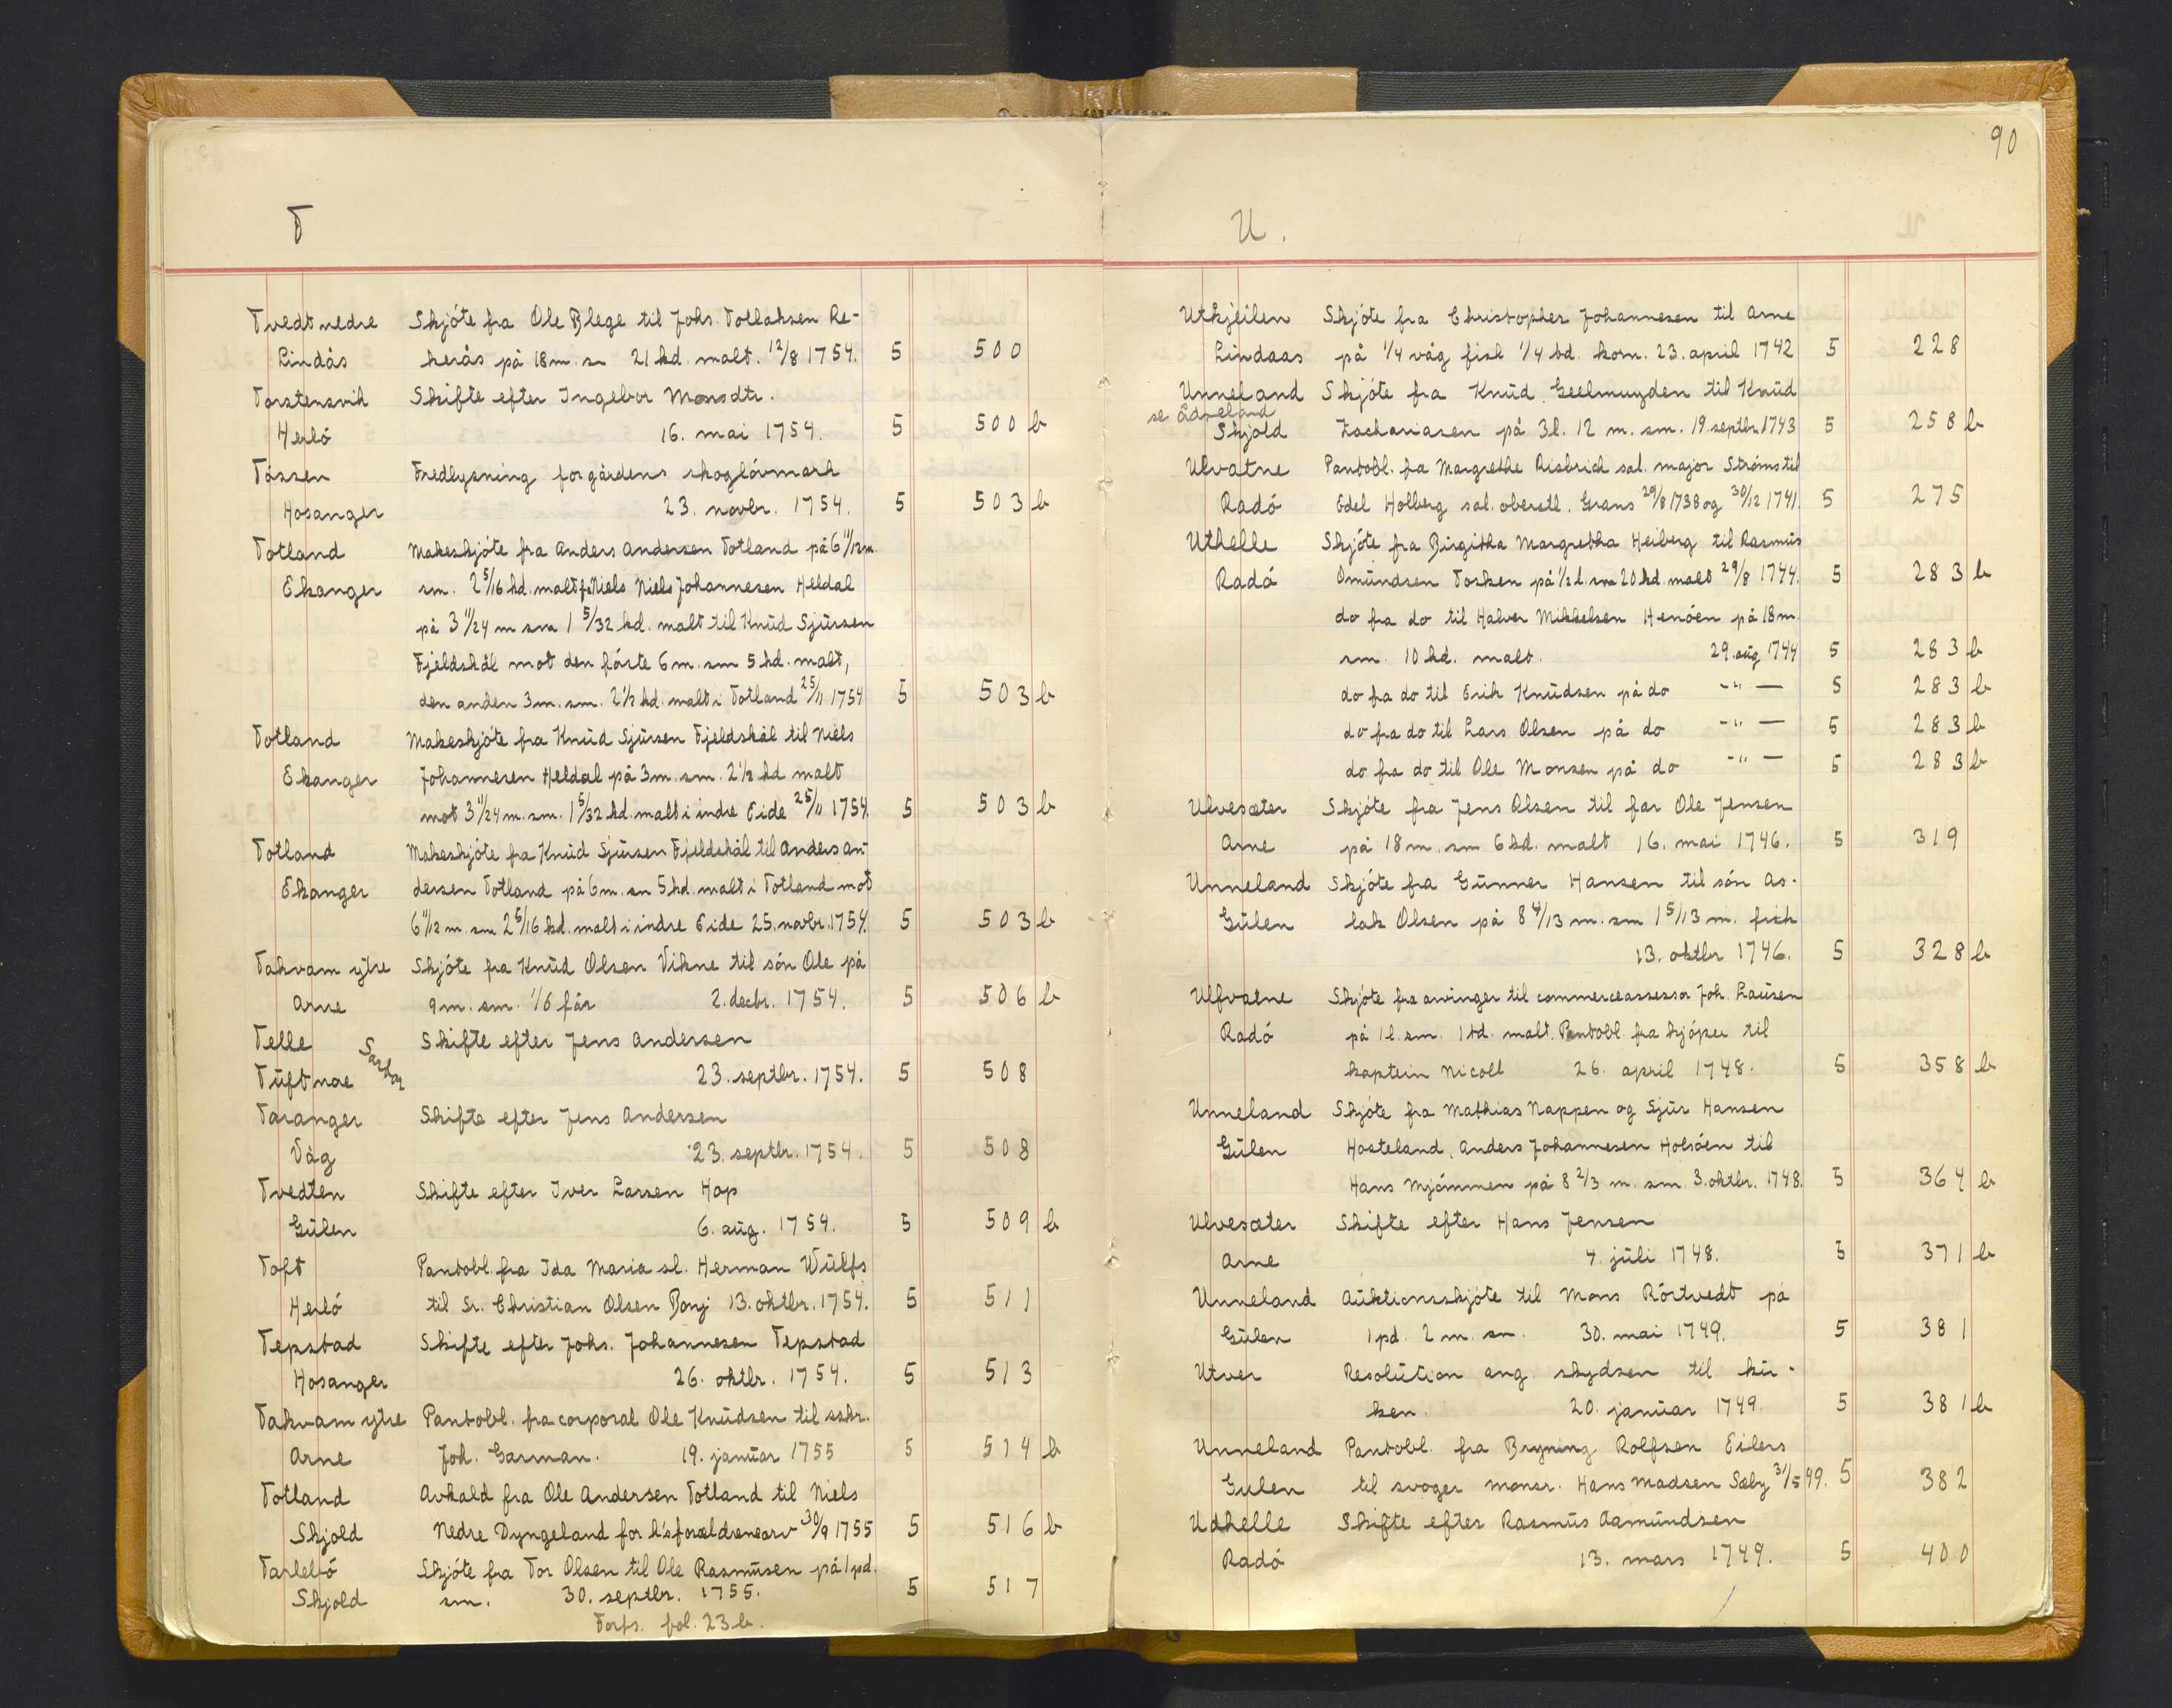 T
Tvedt nedre Skjóte fra Ole Blege til Johs. Tollaksen Re-
Lindås kerås på 18 m. sm 21 kd. malt. 12/8 1754. 5 500
Torstensvik Skifte efter Ingebor Monsdtr.
Herló 16. mai 1754. 5 500 b
Tóssen Fredlysning for gårdens skoglóvmark
Hosanger 23. novbr. 1754. 5 503 b
Totland Makeskjóte fra Anders Andersen Totland på 6 11/12 m.
Ekanger sm. 2 5/16 kd. malt fra Niels Niels Johannesen Heldal
på 3 11/24 m sm 1 5/32 kd. malt til Knud Sjursen
Fjeldskål mot den fórste 6 m. sm 5 kd. malt,
den anden 3 m. sm. 2 1/2 kd. malt i Totland 25/11 1754 5 503 b
Totland Makeskjóte fra Knud Sjursen Fjeldskål til Niels
Ekanger Johannesen Heldal på 3 m. sm. 2 1/2 kd malt
mot 3 11/24 m. sm. 1 5/32 kd. malt i indre Eide 25/11 1754. 5 503 b
Totland Makeskjóte fra Knud Sjursen Fjeldskål til Anders An-
Ekanger dersen Totland på 6 m. sm 5 kd. malt i Totland mot
6 11/12 m. sm 2 5/16 kd. malt i indre Eide 25. novbr. 1754. 5 503 b
Takvam ytre Skjóte fra Knud Olsen Vikne til són Ole på
Arne 9 m. sm. 1/6 får 2. decbr. 1754. 5 506 b
Telle Skifte efter Jens Andersen
Tuftnae Sartor 23. septbr. 1754. 5 508
Taranger Skifte efter Jens Andersen
Våg 23. septbr. 1754. 5 508
Tvedten Skifte efter Iver Larsen Hop
Gulen 6. aug. 1754. 5 509 b
Toft Pantobl. fra Ida Maria sl. Herman Wulfs
Herló til Sr. Christian Olsen Bonj 13. oktbr. 1754. 5 511
Tepstad Skifte efter Johs. Johannesen Tepstad
Hosanger 26. oktbr. 1754. 5 513
Takvam ytre Pantobl. fra corporal Ole Knudsen til sskr.
Arne Joh. Garman. 19. januar 1755 5 514 b
Totland Avkald fra Ole Andersen Totland til Niels
Skjold Nedre Dyngeland for h's forældrenearv 30/9 1755 5 516 b
Tarlebó Skjóte fra Tor Olsen til Ole Rasmusen på 1 pd.
Skjold sm. 30. septbr. 1755. 5 517
Forts. fol. 23 b.
90
U.
Utkjeilen Skjóte fra Christopher Johannesen til Arne
Lindaas på 1/4 våg fisk 1/4 td. korn. 23. april 1742 5 228
Unneland Skjóte fra Knud Geelmuyden til Knud
se Ådneland
Skjold Zachariasen på 3 l. 12 m. sm. 19. septbr. 1743 5 258 b
Ulvatne Pantobl. fra Margrethe Risbrich sal. major Stróms til
Radó Edel Holberg sal. oberstl. Grans 29/8 1738 og 30/12 1741. 5 275
Uthelle Skjóte fra Birgitha Margretha Heiberg til Rasmus
Radó Omundsen Tosken på 1/2 l. sm 20 kd. malt 29/8 1744. 5 283 b
do fra do til Halver Mikkelsen Henóen på 18 m.
sm. 10 kd. malt. 29. aug 1744 5 283 b
do fra do til Erik Knudsen på do -"- — 5 283 b
do fra do til Lars Olsen på do -"- — 5 283 b
do fra do til Ole Monsen på do -"- — 5 283 b
Ulvesæter Skjóte fra Jens Olsen til far Ole Jensen
Arne på 18 m. sm 6 kd. malt 16. mai 1746. 5 319
Unneland Skjóte fra Gunner Hansen til són As-
Gulen lak Olsen på 8 4/13 m. sm 1 5/13 m. fisk
13. oktbr 1746. 5 328 b
Ulfvatne Skjóte fra arvinger til commerceassessor Joh. Lausen
Radó på 1 l. sm. 1 td. malt. Pantobl. fra kjóper til
kaptein Nicoll 26. april 1748. 5 358 b
Unneland Skjóte fra Mathias Nappen og Sjur Hansen
Gulen Hosteland, Anders Johannesen Holsóen til
Hans Mjómmen på 8 2/3 m. sm 3. oktbr. 1748. 5 364 b
Ulvesæter Skifte efter Hans Jensen
Arne 4. juli 1748. 5 371 b
Unneland Auktionsskjóte til Mons Rórtvedt på
Gulen 1 pd. 2 m. sm. 30. mai 1749. 5 381
Utver Resolution ang. skydsen til kir-
ken. 20. januar 1749. 5 381 b
Unneland Pantobl. fra Bryning Rolfsen Eilers
Gulen til svoger monsr. Hans Madsen Sæby 31/5 49. 5 382
Udhelle Skifte efter Rasmus Aamundsen
Radó 13. mars 1749. 5 400